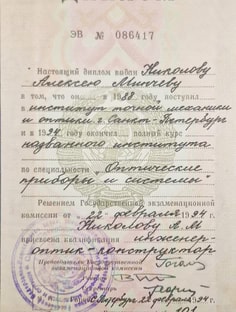 ЭВ № 086417
Настоящий диплом выдан Николову
Алексею Минчеву
в том, что он в 1988 поступил
в институт точной механики
и оптики г. Санкт-Петербург
и в 1994 окончил полный курс
названного института
по специальности „Оптические
приборы и системы“
Решением Государственной экзаменационной
комиссии от 22 февраля 1994
Николову А.М
присвоена квалификация инженер-
оптик-конструктор
Председатель Государственной
экзаменационной комиссии
22 февраля 1994